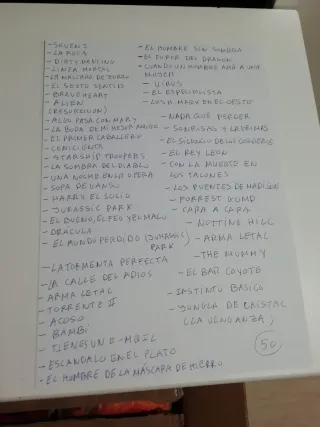 - SEVEN
- LA ROCA
- DIRTY DANCING
- LINEA MORTAL
- LA MASCARA DE ZORRO
- EL SEXTO SENTIDO
- BRAVEHEART
- ALIEN
(RESURRECCION)
- ALGO PASA CON MARY
- LA BODA DE MI MEJOR AMIGO
- EL PRIMER CABALLERO
- CENICIENTA
- STARSHIP TROOPERS
- LA SOMBRA DEL DIABLO
- UNA NOCHE EN LA OPERA
- SOPA DE GANSO
- HARRY EL SUCIO
- JURASSIC PARK
- EL BUENO, EL FEO Y EL MALO
- DRACULA
- EL MUNDO PERDIDO (JURASSIC
PARK
- LA TORMENTA PERFECTA
- LA CALLE DEL ADIOS
- ARMA LETAL
- TORRENTE II
- ACOSO
- BAMBI
- TIENES UN E-MAIL
- ESCANDALO EN EL PLATO
- EL HOMBRE DE LA MASCARA DE HIERRO
- EL HOMBRE SIN SOMBRA
- EL FUROR DEL DRAGON
- CUANDO UN HOMBRE AMA A UNA
MUJER
- VIRUS
- EL ESPECIALISTA
- LOS H. MARX EN EL OESTE
- NADA QUE PERDER
- SONRISAS Y LAGRIMAS
- EL SILENCIO DE LOS CORDEROS
- EL REY LEON
- CON LA MUERTE EN
LOS TALONES
- LOS PUENTES DE MADISON
- FORREST GUMP
- CARA A CARA
- NOTTING HILL
- ARMA LETAL
- THE MUMMY
- EL BAR COYOTE
- INSTINTO BASICO
- JUNGLA DE CRISTAL
(LA VENGANZA)
50